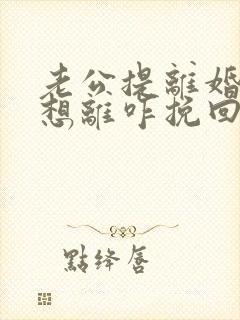 老公提離婚
想離咋挽回
點絳唇